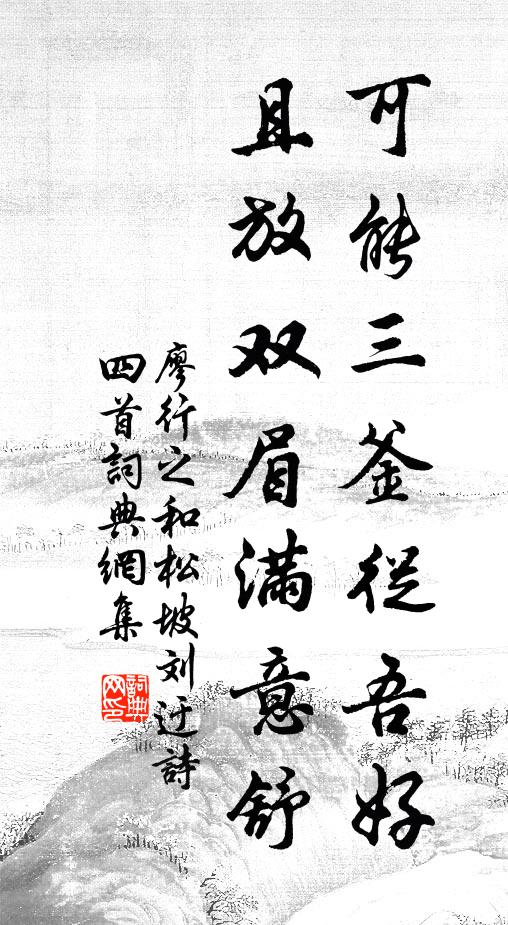 可能三釜從吾好
且放双眉滿意舒
廖行之和松坡刘迂詩
四首詞典網集
詞典网印